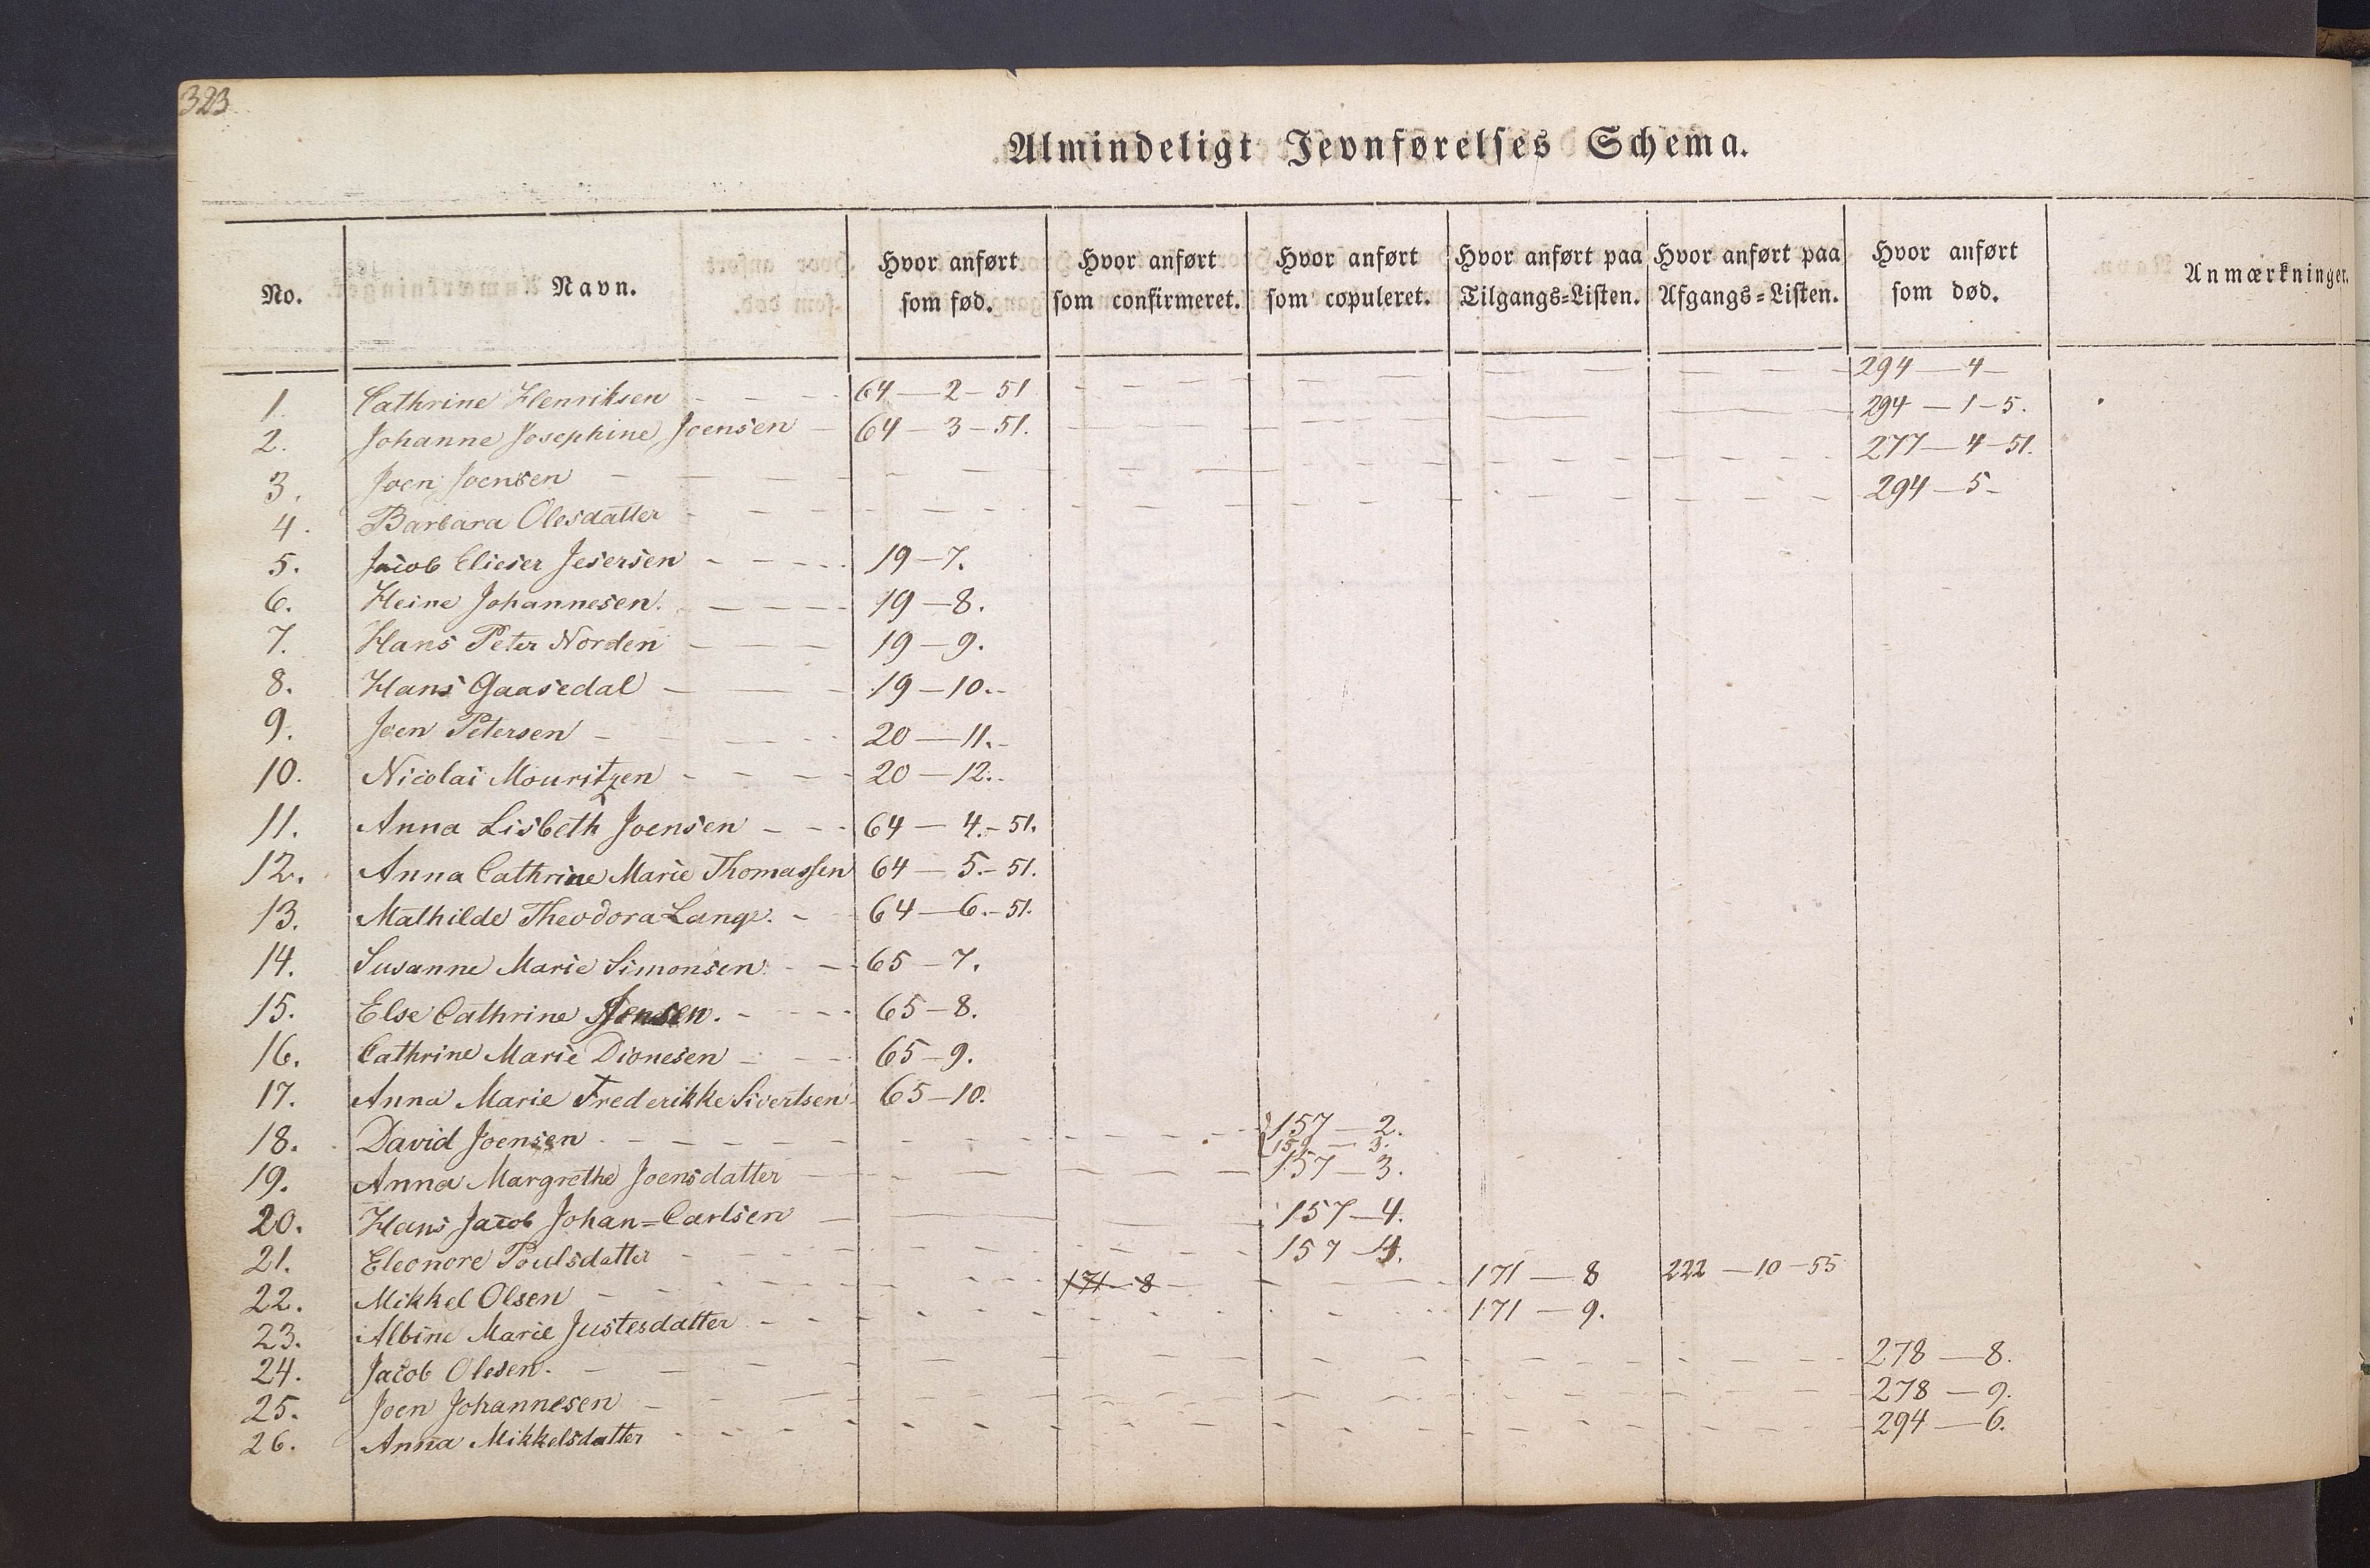 323
Almindeligt Jevnførelses Schema.
No. Navn. Hvor anført som fød. Hvor anført som confirmeret. Hvor anført som copuleret. Hvor anført paa Tilgangs=Listen. Hvor anført paa Afgangs=Listen. Hvor anført som død. Anmærkninger.
1. Cathrine Henriksen 64 — 2 - 51 294 — 4 -
2. Johanne Josephine Joensen 64 - 3 - 51. 294 - 1 - 5.
3. Joen Joensen 277 - 4 - 51.
4. Barbara Olesdatter 294 - 5 -
5. Jacob Elieser Jesersen 19 - 7.
6. Heine Johannesen. 19 - 8.
7. Hans Peter Norden 19 - 9.
8. Hans Gaasedal 19 - 10.
9. Joen Petersen 20 — 11.
10. Nicolai Mouritzen 20 - 12.
11. Anna Lisbeth Joensen 64 - 4. - 51.
12. Anna Cathrine Marie Thomassen 64 - 5. - 51.
13. Mathilde Theodora Lange. 64 - 6. - 51.
14. Susanne Marie Simonsen 65 - 7.
15. Else Cathrine Jensen. 65 - 8.
16. Cathrine Marie Dionesen 65 - 9.
17. Anna Marie Frederikke Sivertsen 65 - 10.
18. David Joensen 157 - 2.
3.
19. Anna Margrethe Joensdatter 157 - 3.
20. Hans Jacob Johan=Carlsen 157 - 4.
21. Eleonore Poulsdatter 157 - 4.
22. Mikkel Olsen 171 - 8 171 — 8 222 - 10 - 55
23. Albine Marie Justesdatter 171 - 9.
24. Jacob Olesen. 278 — 8.
25. Joen Johannesen 278 - 9.
26. Anna Mikkelsdatter 294 - 6.